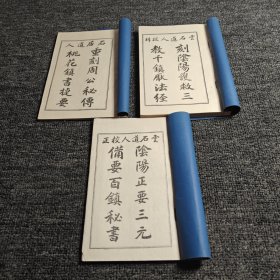 石居道人
重刻周公秘傳
桃花鎮書捷要
雲石道人校
刻陰陽護救三
教千鎮厭法經
雲石道人校正
陰陽正要三元
備要百鎮秘書